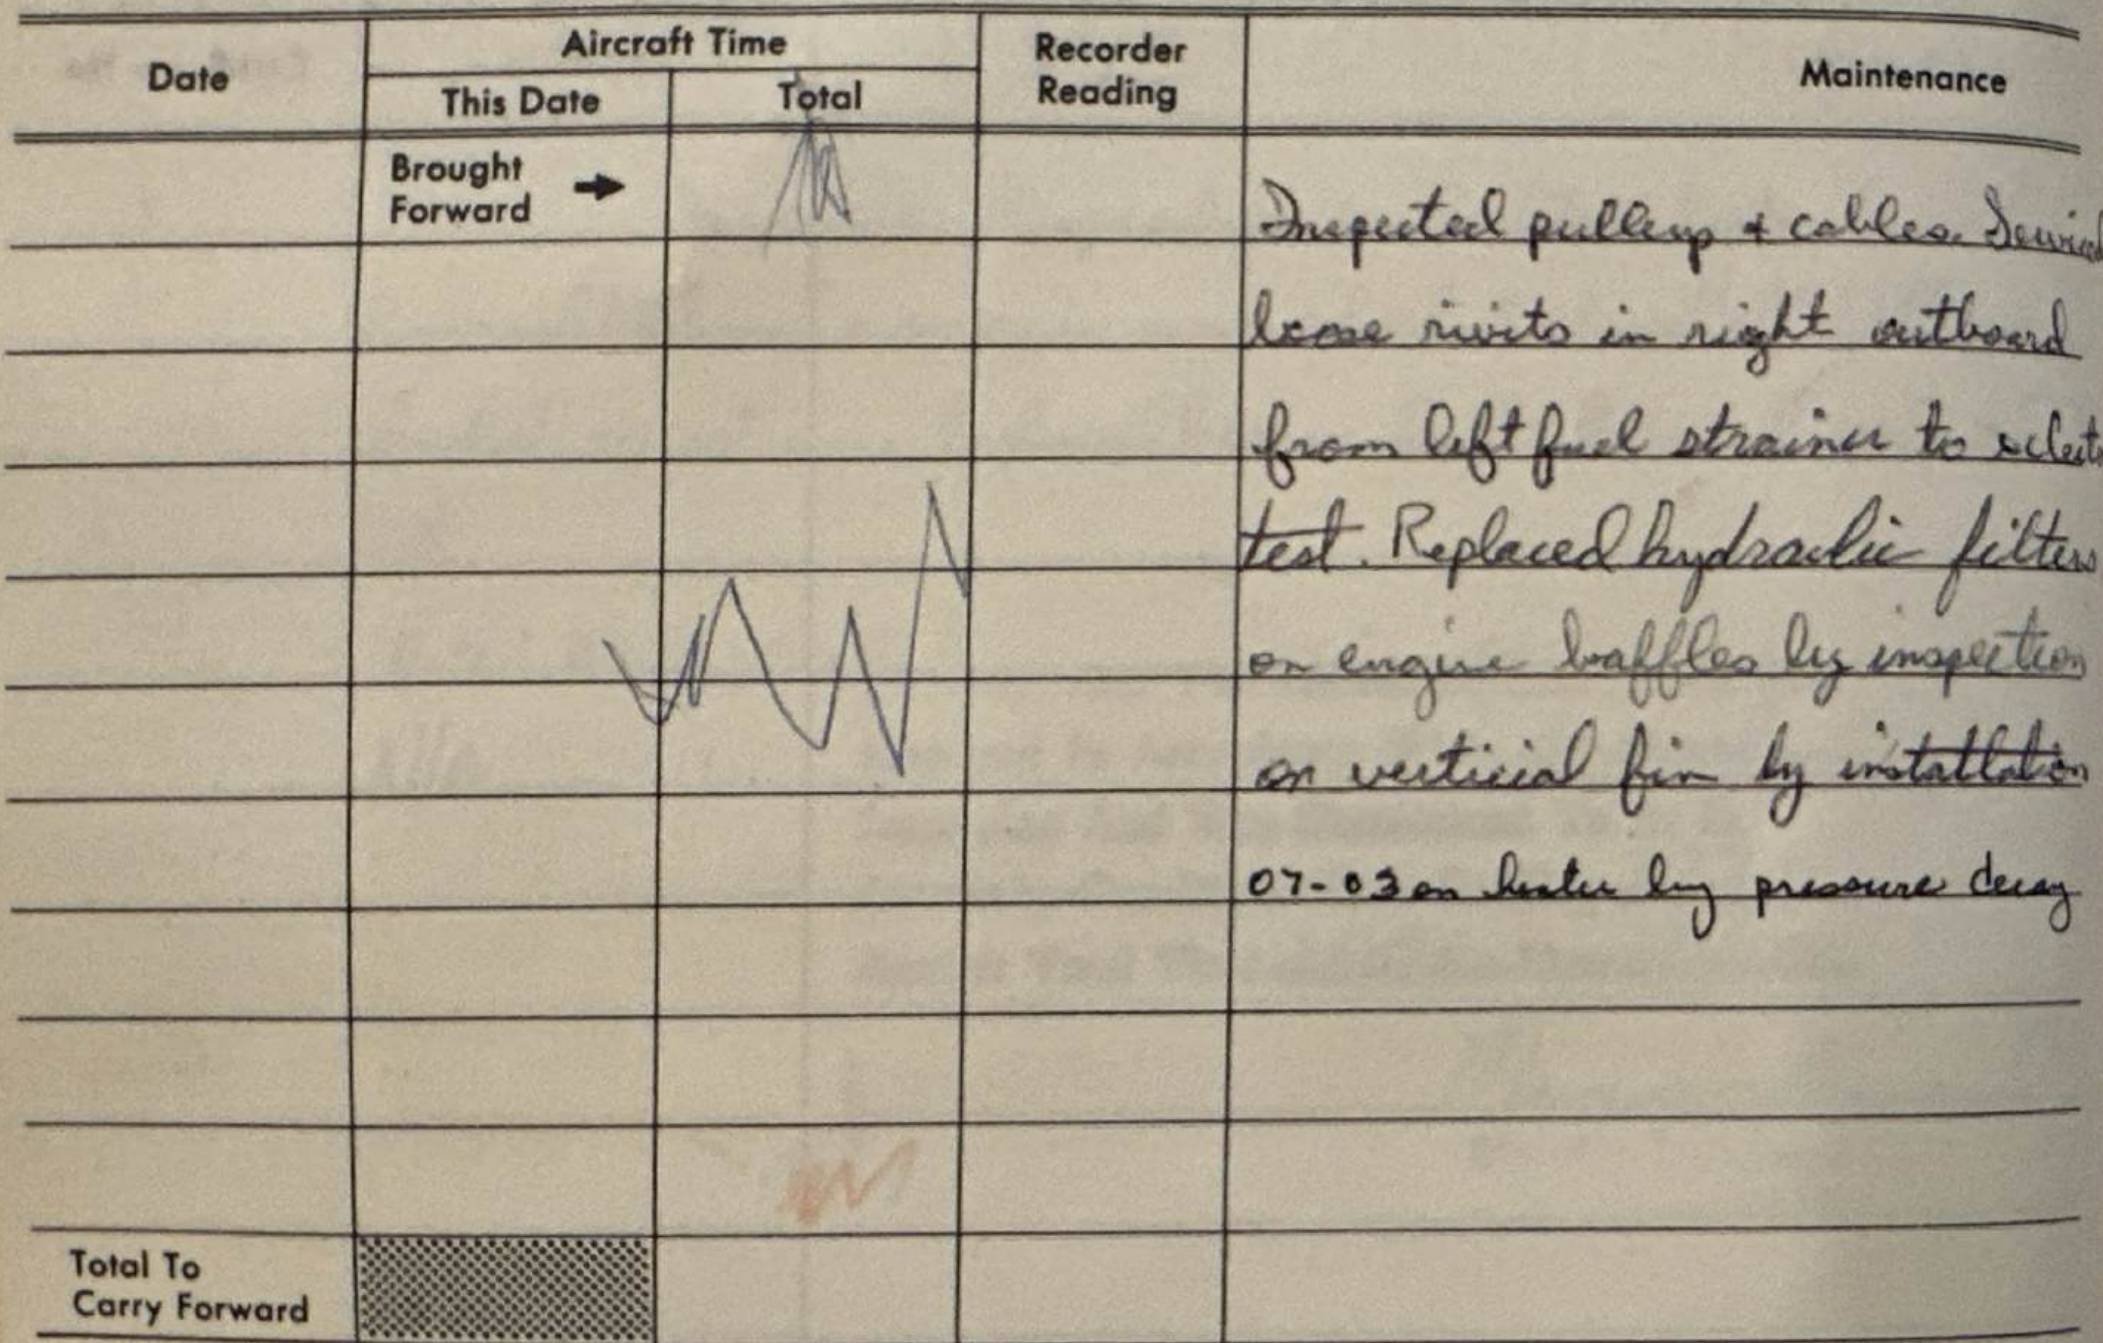 Date
Aircraft Time
This Date
Total
Recorder
Reading
Maintenance
Brought
Forward →
Inspected pulleys + cables.
loose rivits in right outboard
from left fuel strainer to
test. Replaced hydraulic filters
on engine baffles by inspection
on verticial fin by installation
07-03 on heater by pressure decay
Total To
Carry Forward